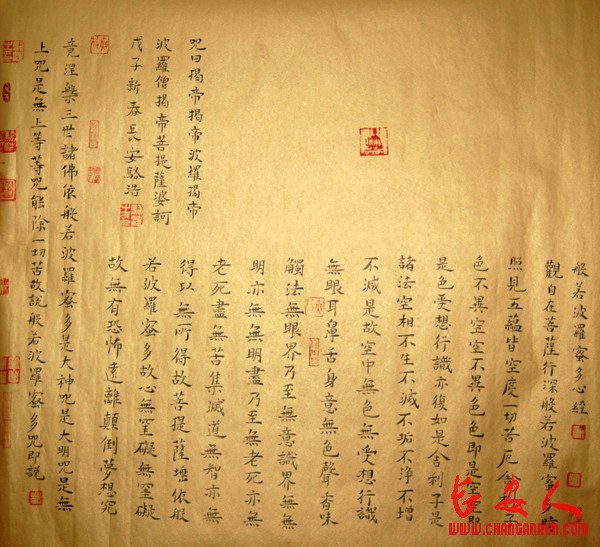 般若波羅蜜多心經
觀自在菩薩行深般若波羅蜜多時
照見五蘊皆空度一切苦厄舍利子
色不異空空不異色色即是空空即
是色受想行識亦復如是舍利子是
諸法空相不生不滅不垢不淨不增
不減是故空中無色無受想行識
無眼耳鼻舌身意無色聲香味
觸法無眼界乃至無意識界無無
明亦無無明盡乃至無老死亦無
老死盡無苦集滅道無智亦無
得以無所得故菩提薩埵依般
若波羅蜜多故心無罣礙無罣礙
故無有恐怖遠離顛倒夢想究
竟涅槃三世諸佛依般若波羅蜜多是大神咒是大明咒是無
上咒是無上等等咒能除一切苦故說般若波羅蜜多咒即說
咒曰揭帝揭帝波羅揭帝
波羅僧揭帝菩提薩婆訶
戊子新春長安駱浩
长安人
WWW.CHANGANREN.COM